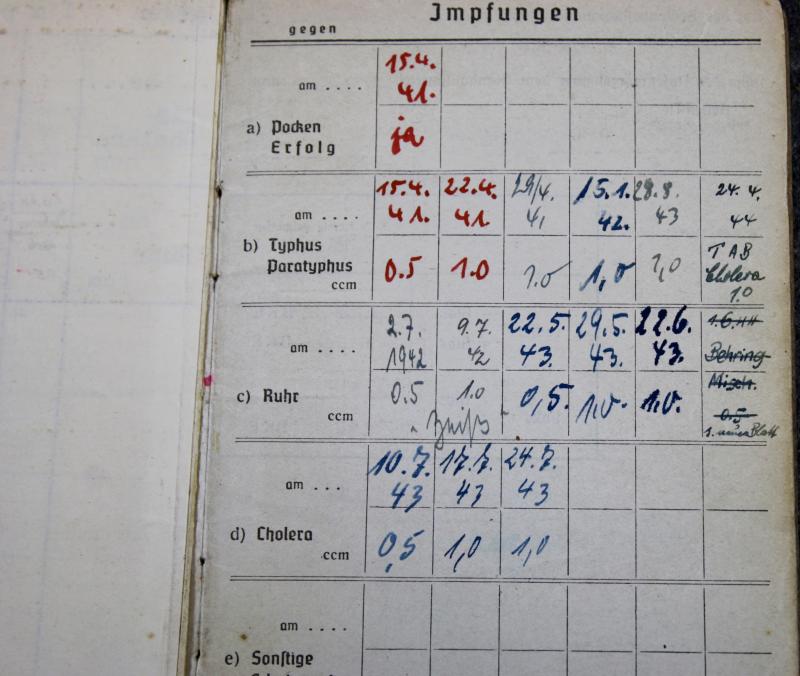 Impfungen
gegen
am . . . . 15.4. 41.
a) Pocken
Erfolg ja
am . . . . 15.4. 41. 22.4. 41. 29/4. 41 15.1. 42. 28.8. 43 24. 4. 44
b) Typhus
Paratyphus
ccm 0.5 1.0 1.0 1,0 1,0 TAB Cholera 1.0
am . . . . 2.7. 1942 9.7. 42 22.5. 43. 29.5. 43. 22.6. 43. 1.6.44 Behring
c) Ruhr
ccm 0.5 1.0 0,5. 1,0. 1,0. Misch. 0.5
s. neues Blatt
am . . . 10.7. 43 17.7. 43 24.7. 43
d) Cholera
ccm 0,5 1,0 1,0
am . . . .
e) Sonstige